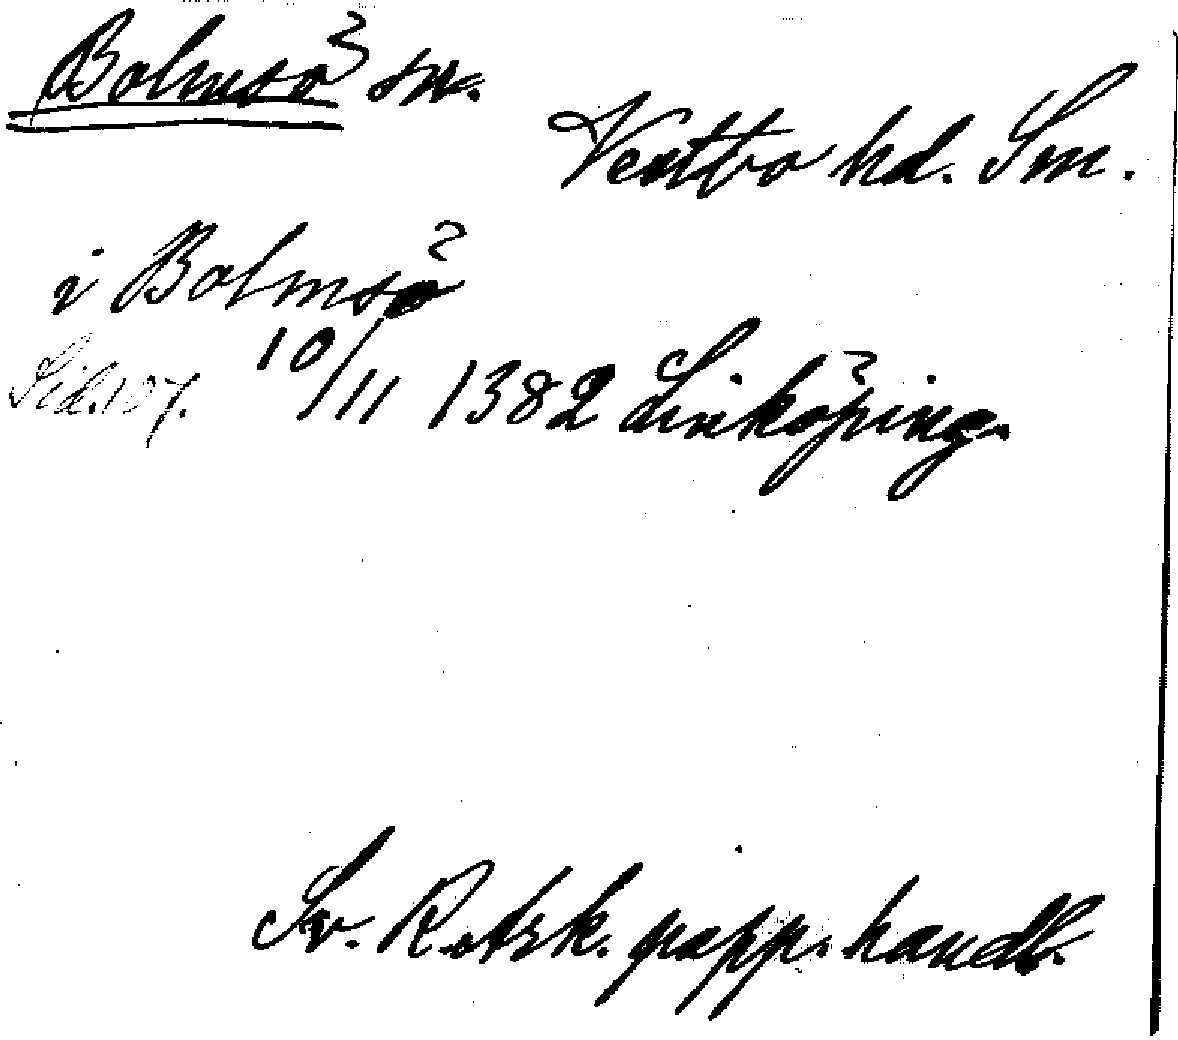 Bolmsö sn.
Västbo hd. Sm.
i Bolmsö
Sid. 107. 10/11 1382 Linköping.
Sv. Rotsk. papp. handl.